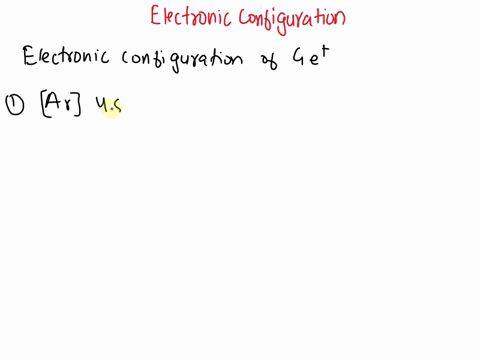 Electronic Configuration
Electronic configuration of Ge⁺
① [Ar] 4s